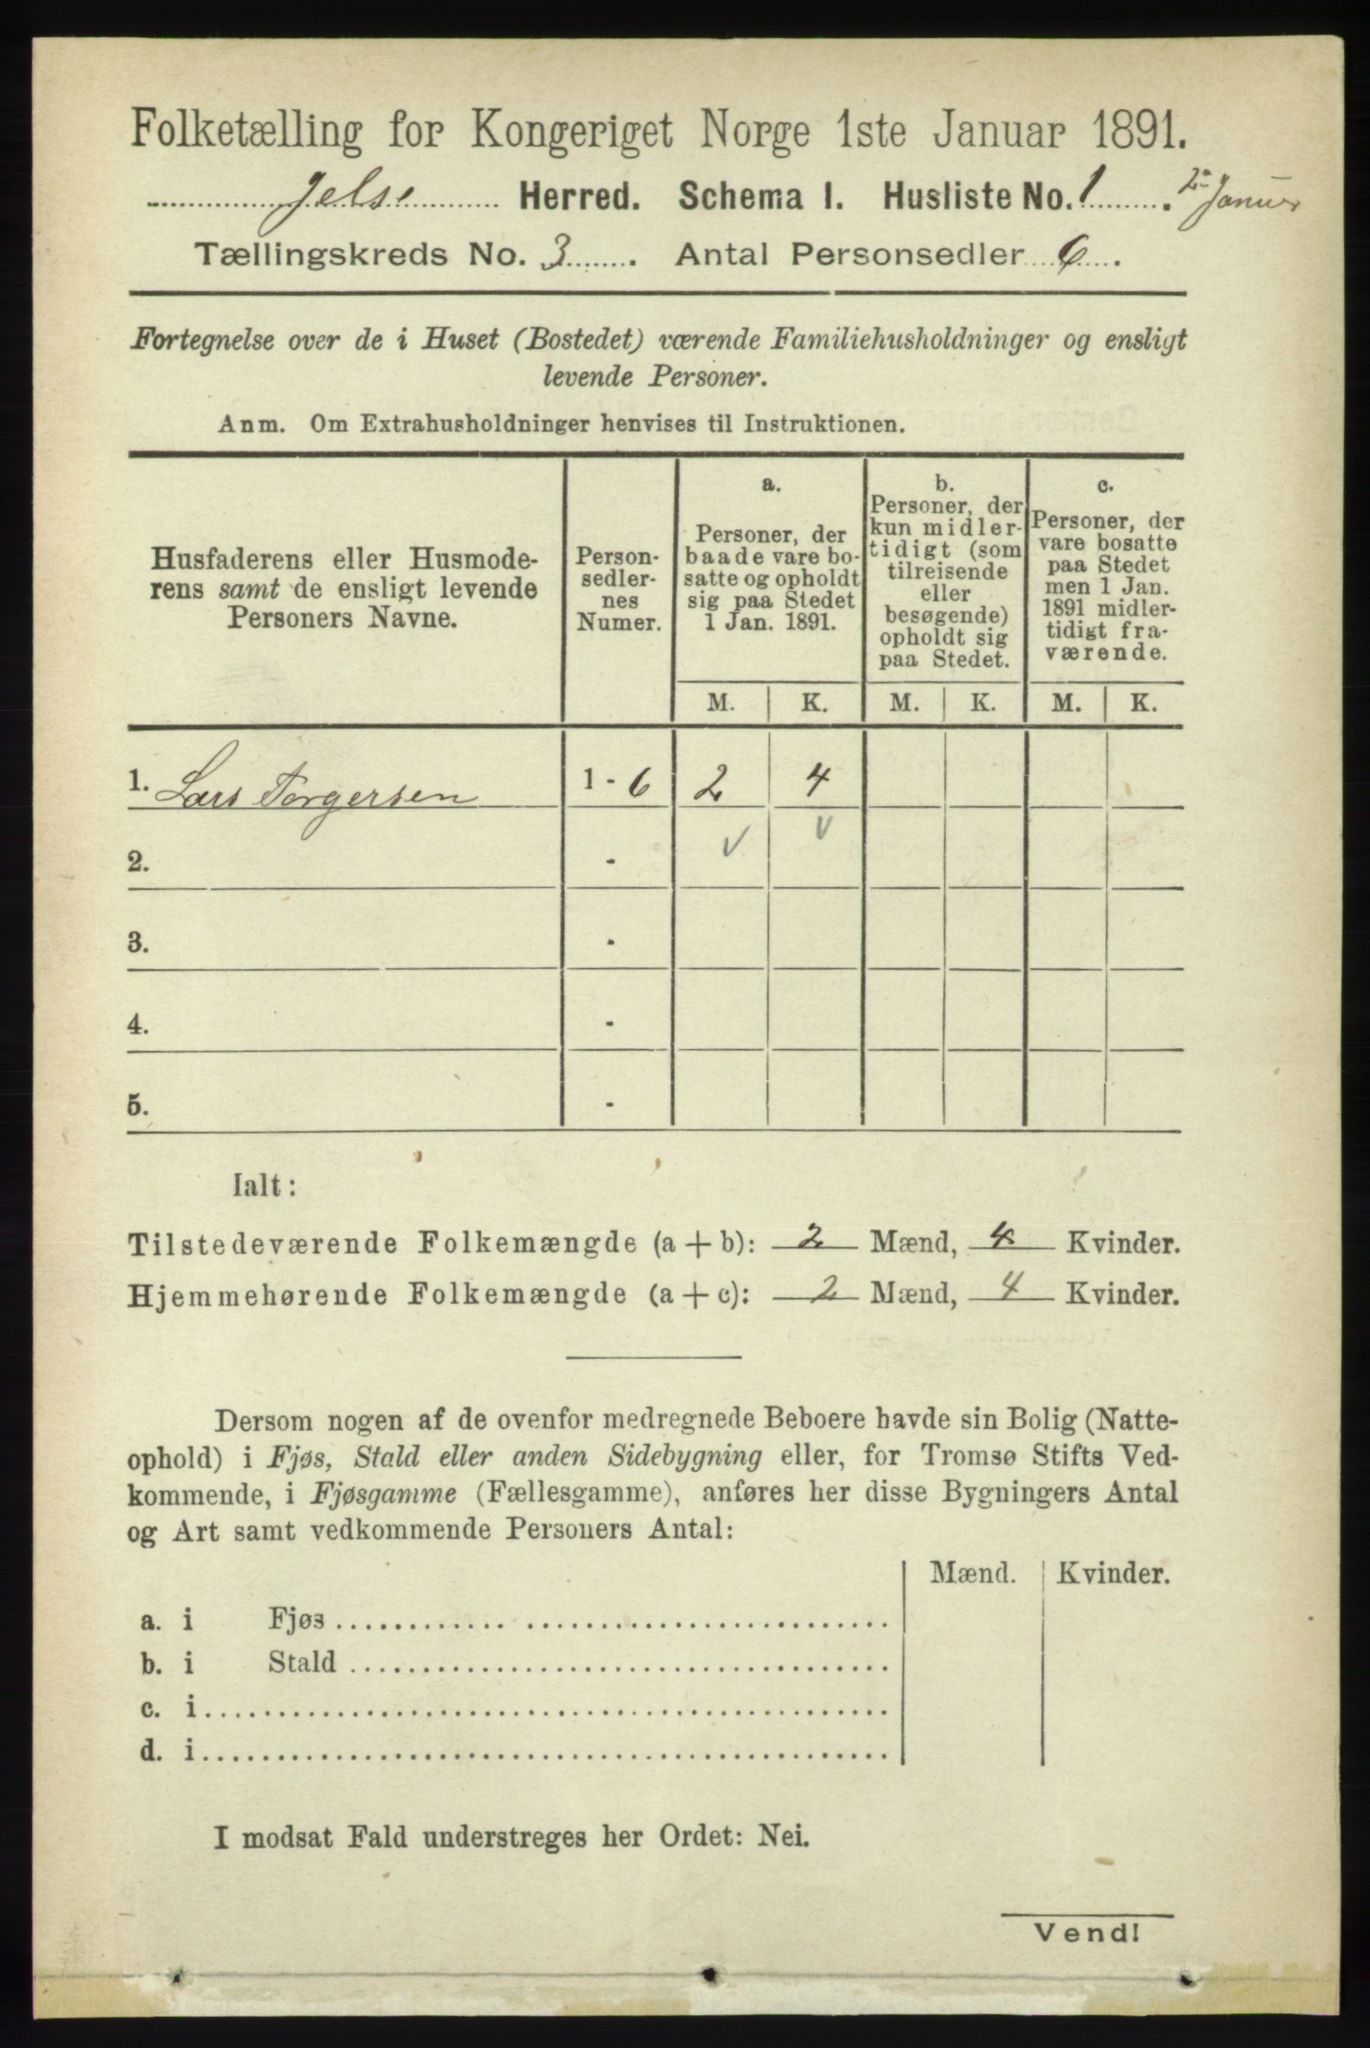 Folketælling for Kongeriget Norge 1ste Januar 1891.
Jelse Herred. Schema I. Husliste No. 1. 2 Januar
Tællingskreds No. 3. Antal Personsedler 6.
Fortegnelse over de i Huset (Bostedet) værende Familiehusholdninger og ensligt
levende Personer.
Anm. Om Extrahusholdninger henvises til Instruktionen.
Husfaderens eller Husmode-
rens samt de ensligt levende
Personers Navne.
Person-
sedler-
nes
Numer.
a.
Personer, der
baade vare bo-
satte og opholdt
sig paa Stedet
1 Jan. 1891.
b.
Personer, der
kun midler-
tidigt (som
tilreisende
eller
besøgende)
opholdt sig
paa Stedet.
c.
Personer, der
vare bosatte
paa Stedet
men 1 Jan.
1891 midler-
tidigt fra-
værende.
M. K. M. K. M. K.
1. Lars Torgersen 1 - 6 2 4
2. -
3. -
4. -
5. -
Ialt:
Tilstedeværende Folkemængde (a + b): 2 Mænd, 4 Kvinder.
Hjemmehørende Folkemængde (a + c): 2 Mænd, 4 Kvinder.
Dersom nogen af de ovenfor medregnede Beboere havde sin Bolig (Natte-
ophold) i Fjøs, Stald eller anden Sidebygning eller, for Tromsø Stifts Ved-
kommende, i Fjøsgamme (Fællesgamme), anføres her disse Bygningers Antal
og Art samt vedkommende Personers Antal:
Mænd. Kvinder.
a. i Fjøs
b. i Stald
c. i
d. i
I modsat Fald understreges her Ordet: Nei.
Vend!